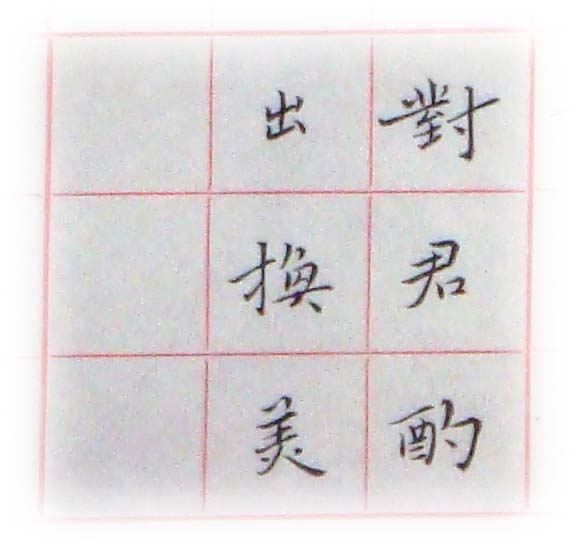 對君酌
出換美